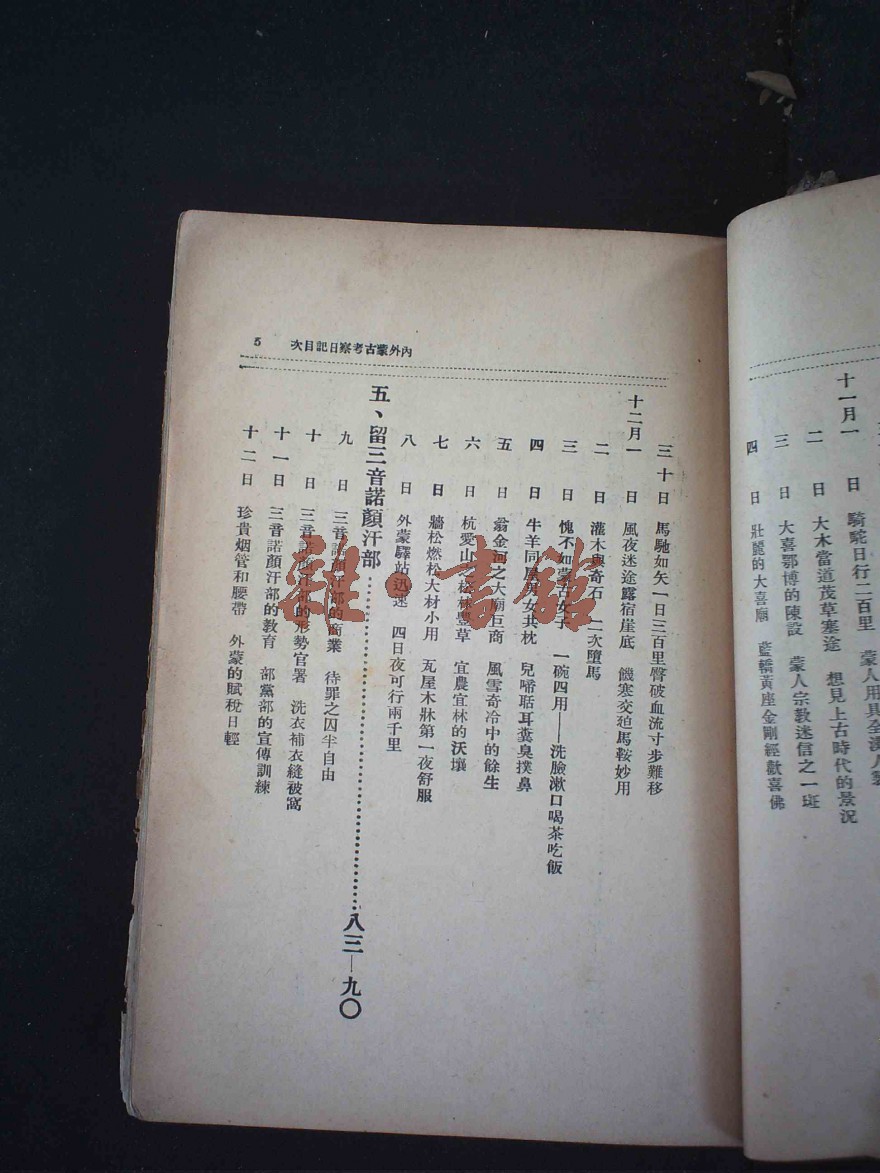 十一月一日 騎駝日行二百里 蒙人用具全漢人製
二日 大木當道茂草塞途 想見上古時代的景況
三日 大喜鄂博的陳設 蒙人宗教迷信之一斑
四日 壯麗的大喜廟 藍轎黃座金剛經歡喜佛
內外蒙古考察日記目次 5
三十日 馬馳如矢一日三百里臀破血流寸步難移
十二月一日 風夜迷途露宿崖底 饑寒交迫馬鞍妙用
二日 灌木與奇石 二次墮馬
三日 愧不如蒙古女子 一碗四用——洗臉漱口喝茶吃飯
四日 牛羊同屋男女共枕 兒啼聒耳糞臭撲鼻
五日 翁金河之大廟巨商 風雪奇冷中的餘生
六日 杭愛山之松林豐草 宜農宜林的沃壤
七日 牆松燃松大材小用 瓦屋木牀第一夜舒服
八日 外蒙驛站迅速 四日夜可行兩千里
五、留三音諾顏汗部……………八三—九〇
九日 三音諾顏汗部的商業 待罪之囚半自由
十日 三音諾顏汗部的形勢官署 洗衣補衣縫被窩
十一日 三音諾顏汗部的教育 部黨部的宣傳訓練
十二日 珍貴烟管和腰帶 外蒙的賦稅日輕
雜·書館